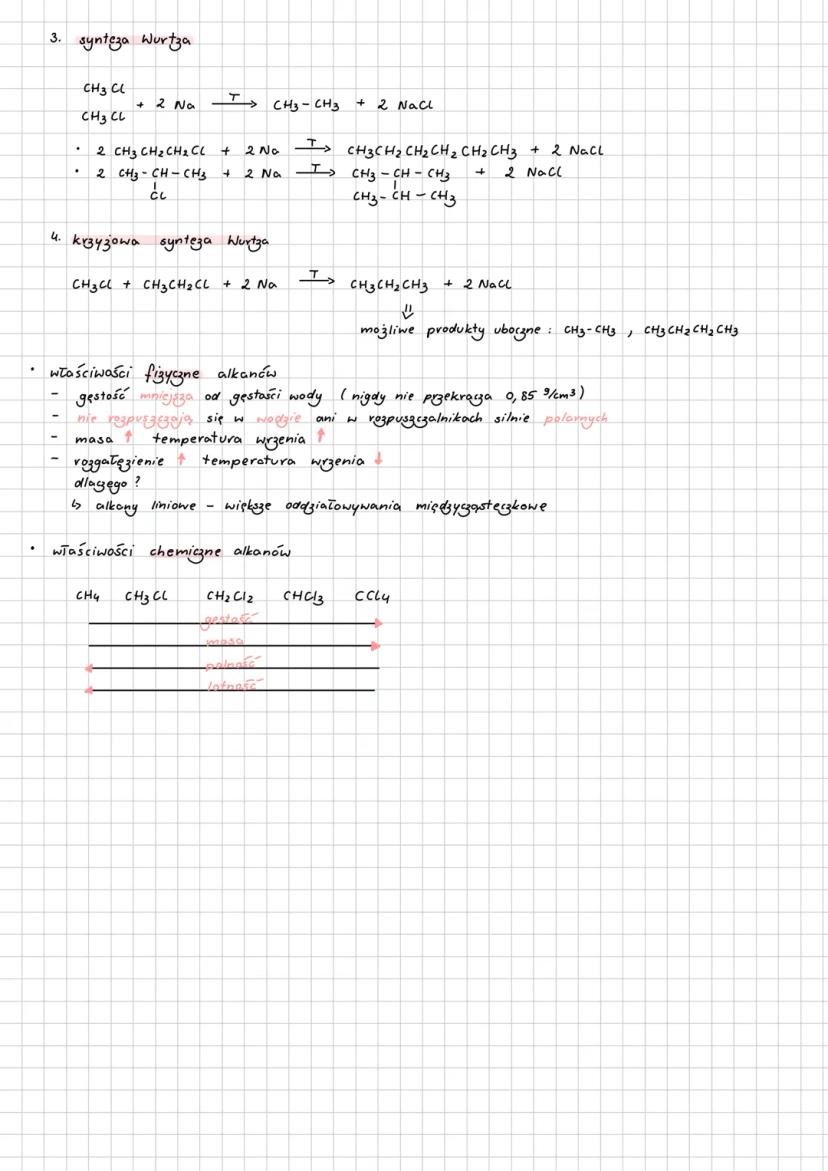 3. synteza Wurtza
CH3 Cl
CH3 Cl + 2 Na T→ CH3 – CH3 + 2 NaCl
• 2 CH3 CH2 CH2 Cl + 2 Na T→ CH3 CH2 CH2 CH2 CH2 CH3 + 2 NaCl
• 2 CH3 – CH – CH3 + 2 Na T→ CH3 – CH – CH3 + 2 NaCl
Cl CH3 – CH – CH3
4. krzyżowa synteza Wurtza
CH3Cl + CH3CH2Cl + 2 Na T→ CH3CH2CH3 + 2 NaCl
⇓
możliwe produkty uboczne : CH3-CH3 , CH3CH2CH2CH3
• właściwości fizyczne alkanów
– gęstość mniejsza od gęstości wody ( nigdy nie przekracza 0,85 g/cm3 )
– nie rozpuszczają się w wodzie ani w rozpuszczalnikach silnie polarnych
– masa ↑ temperatura wrzenia ↑
– rozgałęzienie ↑ temperatura wrzenia ↓
dlaczego ?
↳ alkany liniowe – większe oddziaływania międzycząsteczkowe
• właściwości chemiczne alkanów
CH4 CH3Cl CH2Cl2 CHCl3 CCl4
gęstość
masa
palność
lotność